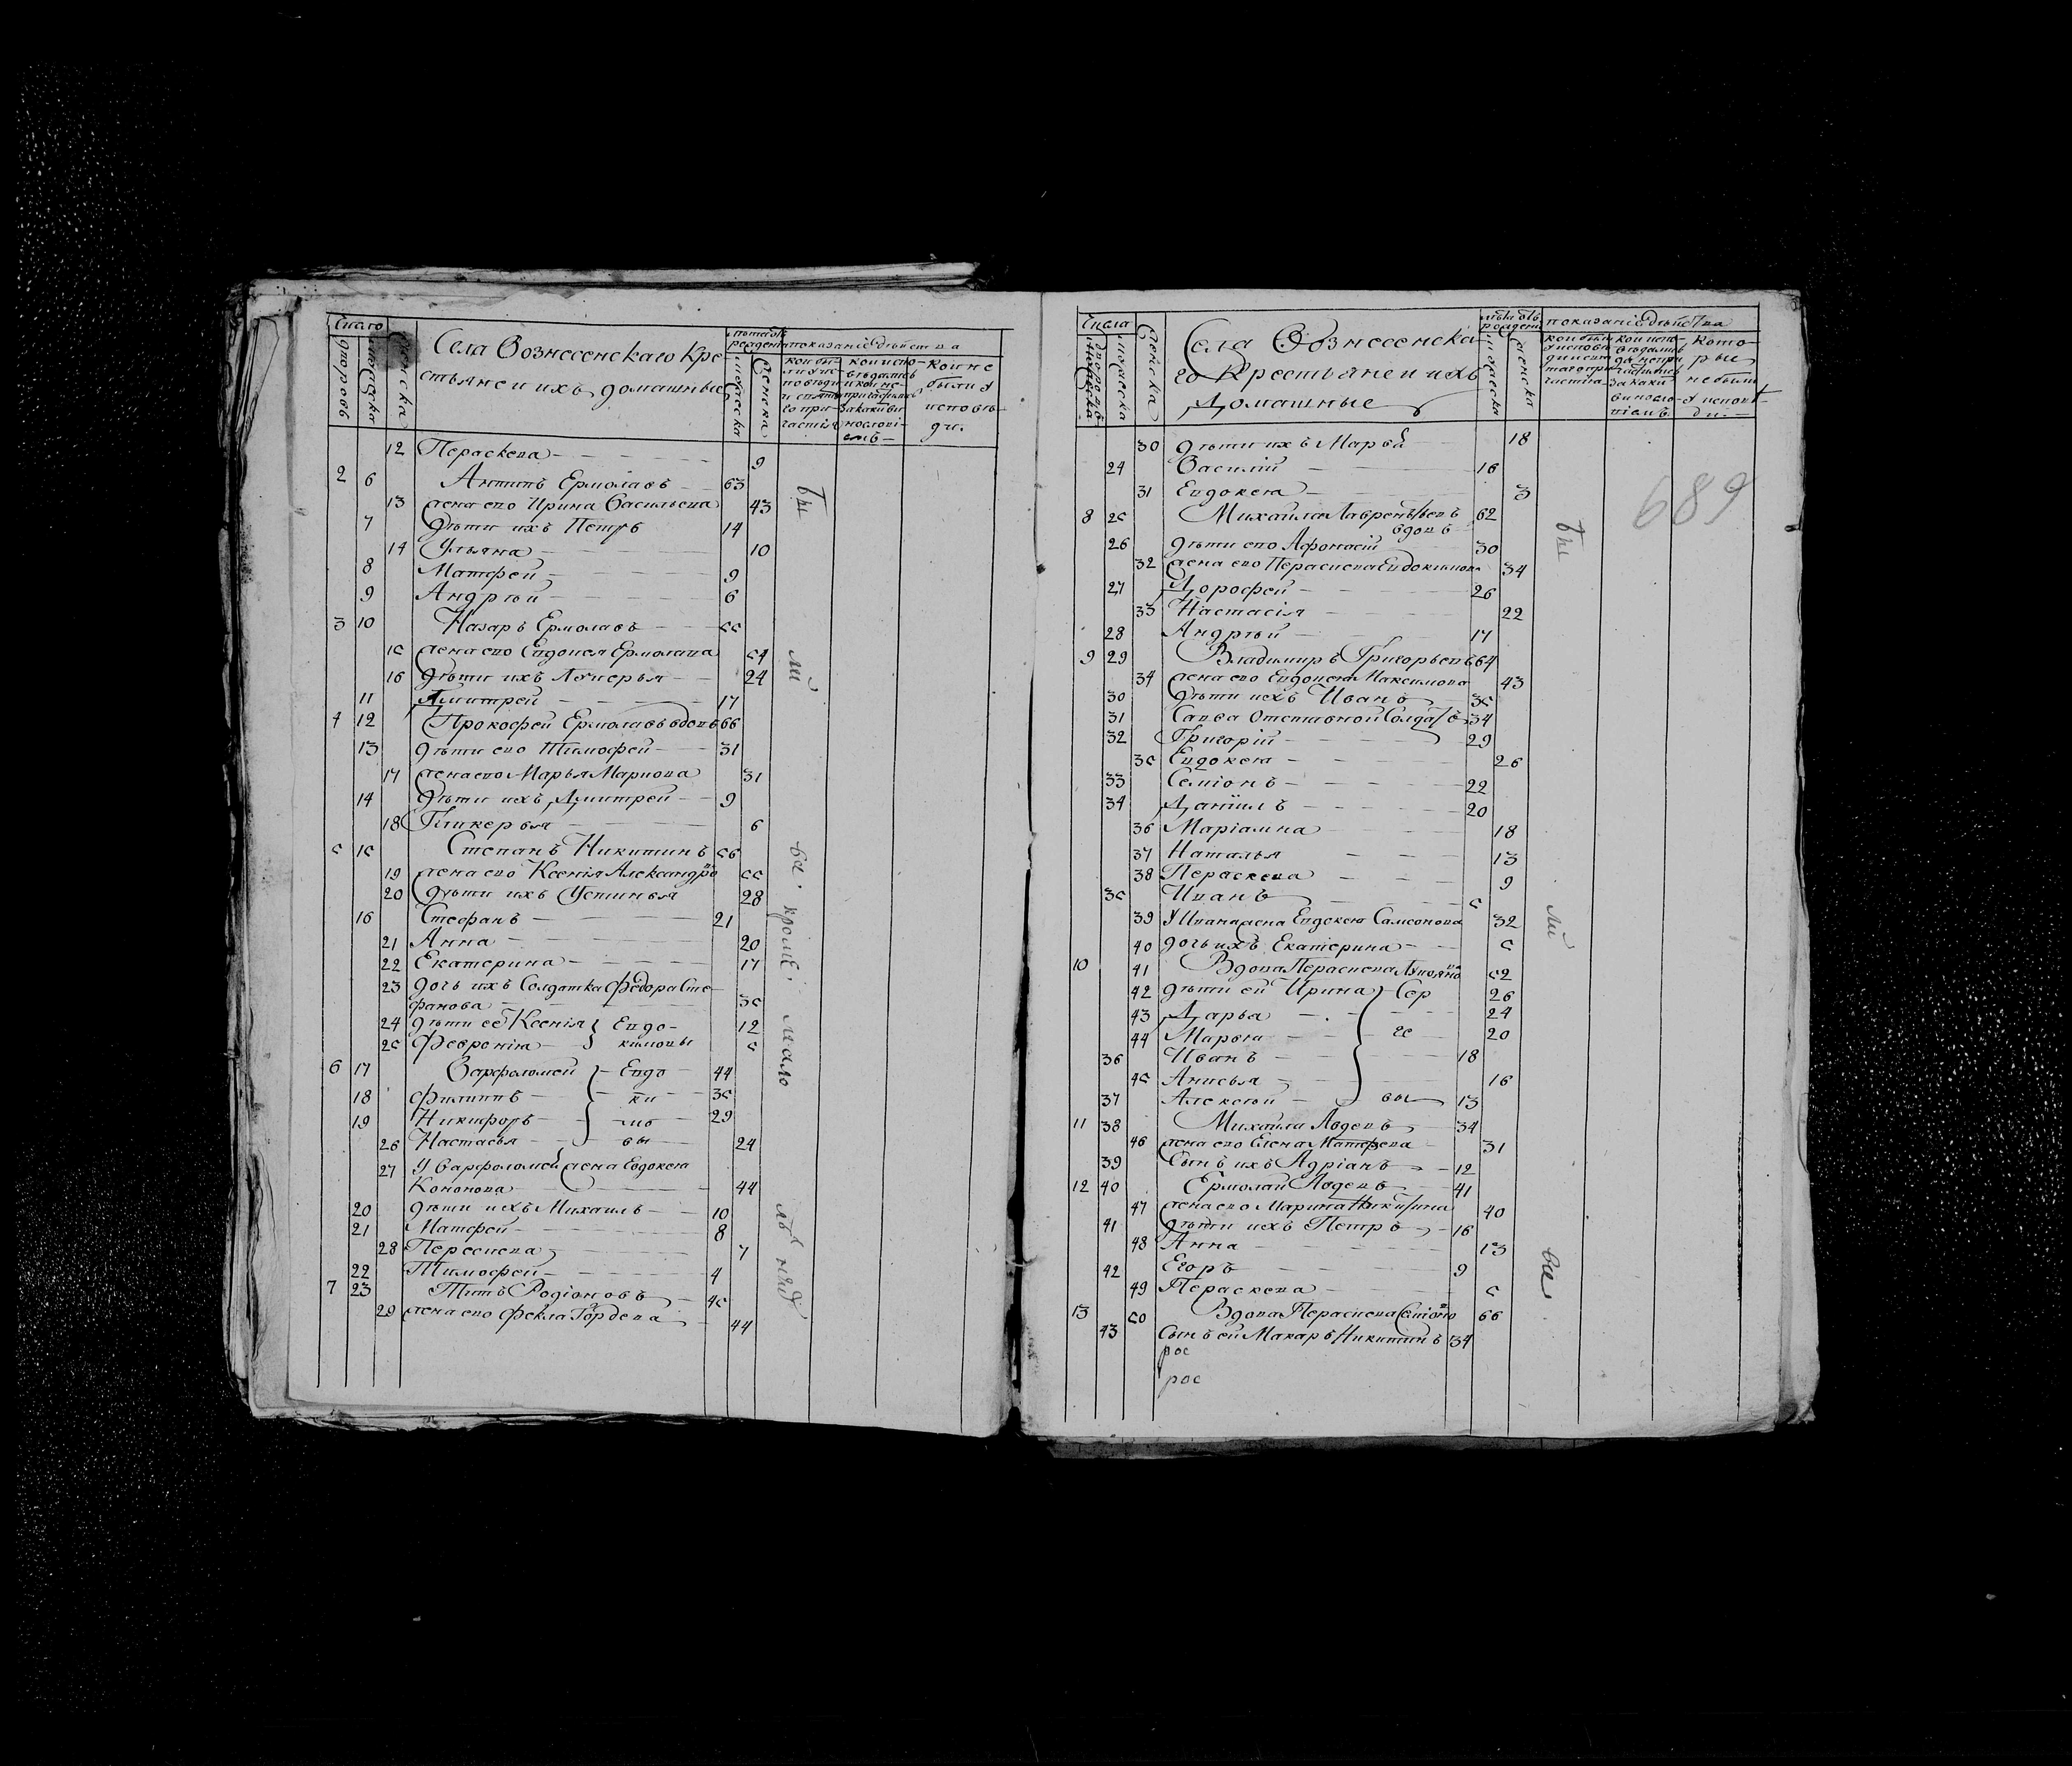 Число
дворовъ
мужеска
женска
Села Вознесенскаго Кре
стьяне и ихъ домашные
лѣта отъ рожденія
мужеска
женска
показаніе дѣйства
кои не были у исповѣди.
12 Параскева 9
2 6 Антипъ Ермолаевъ 63
13 жена его Ирина Васильева 43
7 дѣти ихъ Петръ 14
14 Ульяна 10
8 Матфей 9
9 Андрѣй 6
3 10 Назаръ Ермолаевъ 55
15 жена его Евдокея Ермолаева 54
16 дѣти ихъ Лукерья 24
11 Дмитрей 17
4 12 Прокофей Ермолаевъ вдовъ 66
13 дѣти его Тимофей 31
17 жена его Марья Маркова 31
14 дѣти ихъ Дмитрей 9
18 Гликерья 6
5 15 Степанъ Никитинъ 56
19 жена его Ксенія Александро 55
20 дѣти ихъ Устинья 28
16 Стефанъ 21
21 Анна 20
22 Екатерина 17
23 дочь ихъ Солдатка Федора Сте
фанова 35
24 дѣти ее Ксенія Евдо- 12
25 Февронія кимовы 5
6 17 Варфоломей Евдо 44
18 Филиппъ ки 35
19 Никифоръ мо 29
26 Настасья вы 24
27 У Варфоломея жена Евдокея
Кононова 44
20 дѣти ихъ Михаилъ 10
21 Матфей 8
28 Параскева 7
22 Тимофей 4
7 23 Титъ Родіоновъ 45
29 жена его Фекла Гордѣева 44
бы
ли
все. кромѣ. мало
лѣтнихъ
Числа
дворовъ
мужеска
женска
Села Вознесенска
го Крестьяне и ихъ
Домашные
лѣта отъ рожденія
мужеска
женска
показаніе дѣйства
которые не были у исповѣди.
689
30 дѣти ихъ Марья 18
24 Василій 16
31 Евдокея 3
8 25 Михайла Лаврентьевъ 62
вдовъ
26 дѣти его Афонасій 30
32 жена его Параскева Евдокимова 34
27 Дорофей 26
33 Настасія 22
28 Андрѣй 17
9 29 Владимиръ Григорьевъ 64
34 жена его Евдокея Максимова 43
30 дѣти ихъ Иванъ 35
31 Савва Отставной Солдатъ 34
32 Григорій 29
35 Евдокея 26
33 Семіонъ 22
34 Даніилъ 20
36 Маріамна 18
37 Наталья 13
38 Параскева 9
35 Иванъ 5
39 У Ивана жена Евдокея Самсонова 32
40 дочь ихъ Екатерина 5
10 41 Вдова Параскева Лукояно 52
42 дѣти ей Ирина Сер 26
43 Дарья 24
44 Марѳа ге 20
36 Иванъ 18
45 Анисья 16
37 Алексѣй вы 13
11 38 Михайла Авдѣевъ 34
46 жена его Елена Матфеева 31
39 Сынъ ихъ Адріанъ 12
12 40 Ермолай Авдѣевъ 41
47 жена его Марина Никитина 40
41 дѣти ихъ Петръ 16
48 Анна 13
42 Егоръ 9
49 Параскева 5
13 50 Вдова Параскева Семіоно 66
43 Сынъ ей Макаръ Никитинъ 34
рос
рос
бы
ли
все